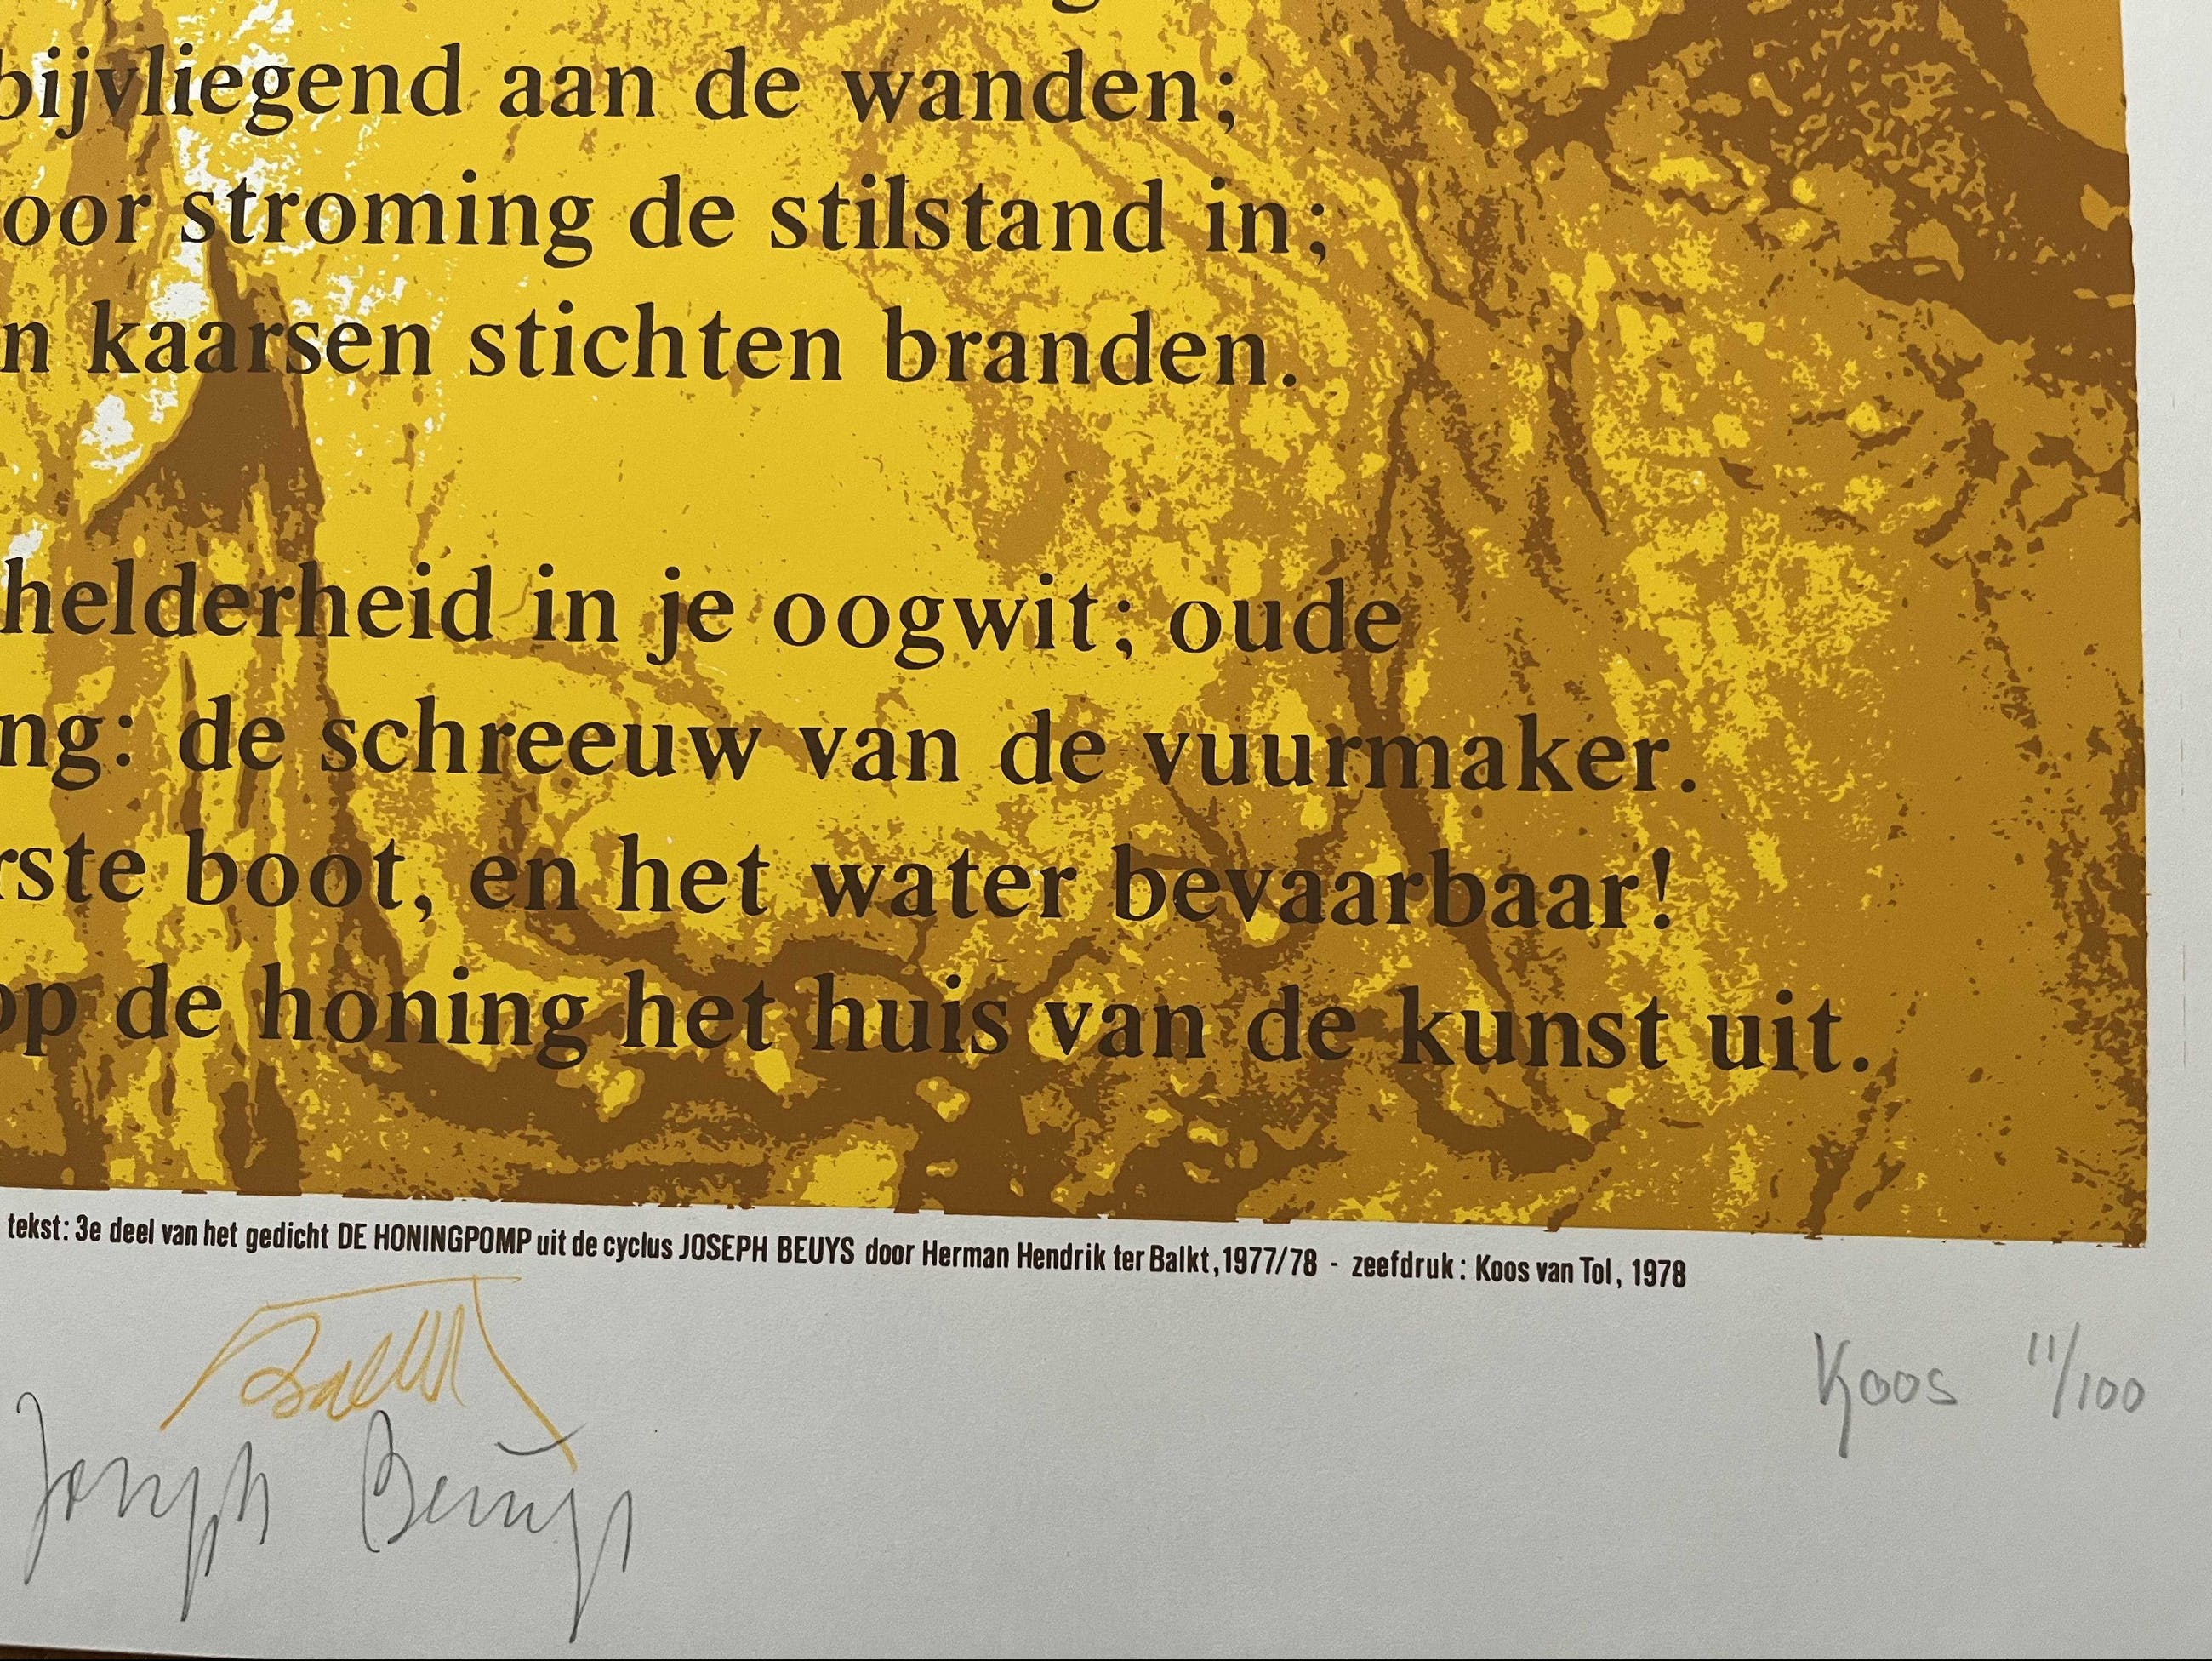 bijvliegend aan de wanden;
oor stroming de stilstand in;
n kaarsen stichten branden.
helderheid in je oogwit; oude
ng: de schreeuw van de vuurmaker.
rste boot, en het water bevaarbaar!
op de honing het huis van de kunst uit.
tekst: 3e deel van het gedicht DE HONINGPOMP uit de cyclus JOSEPH BEUYS door Herman Hendrik ter Balkt, 1977/78 - zeefdruk: Koos van Tol, 1978
Balkt
Koos 11/100
Joseph Beuys